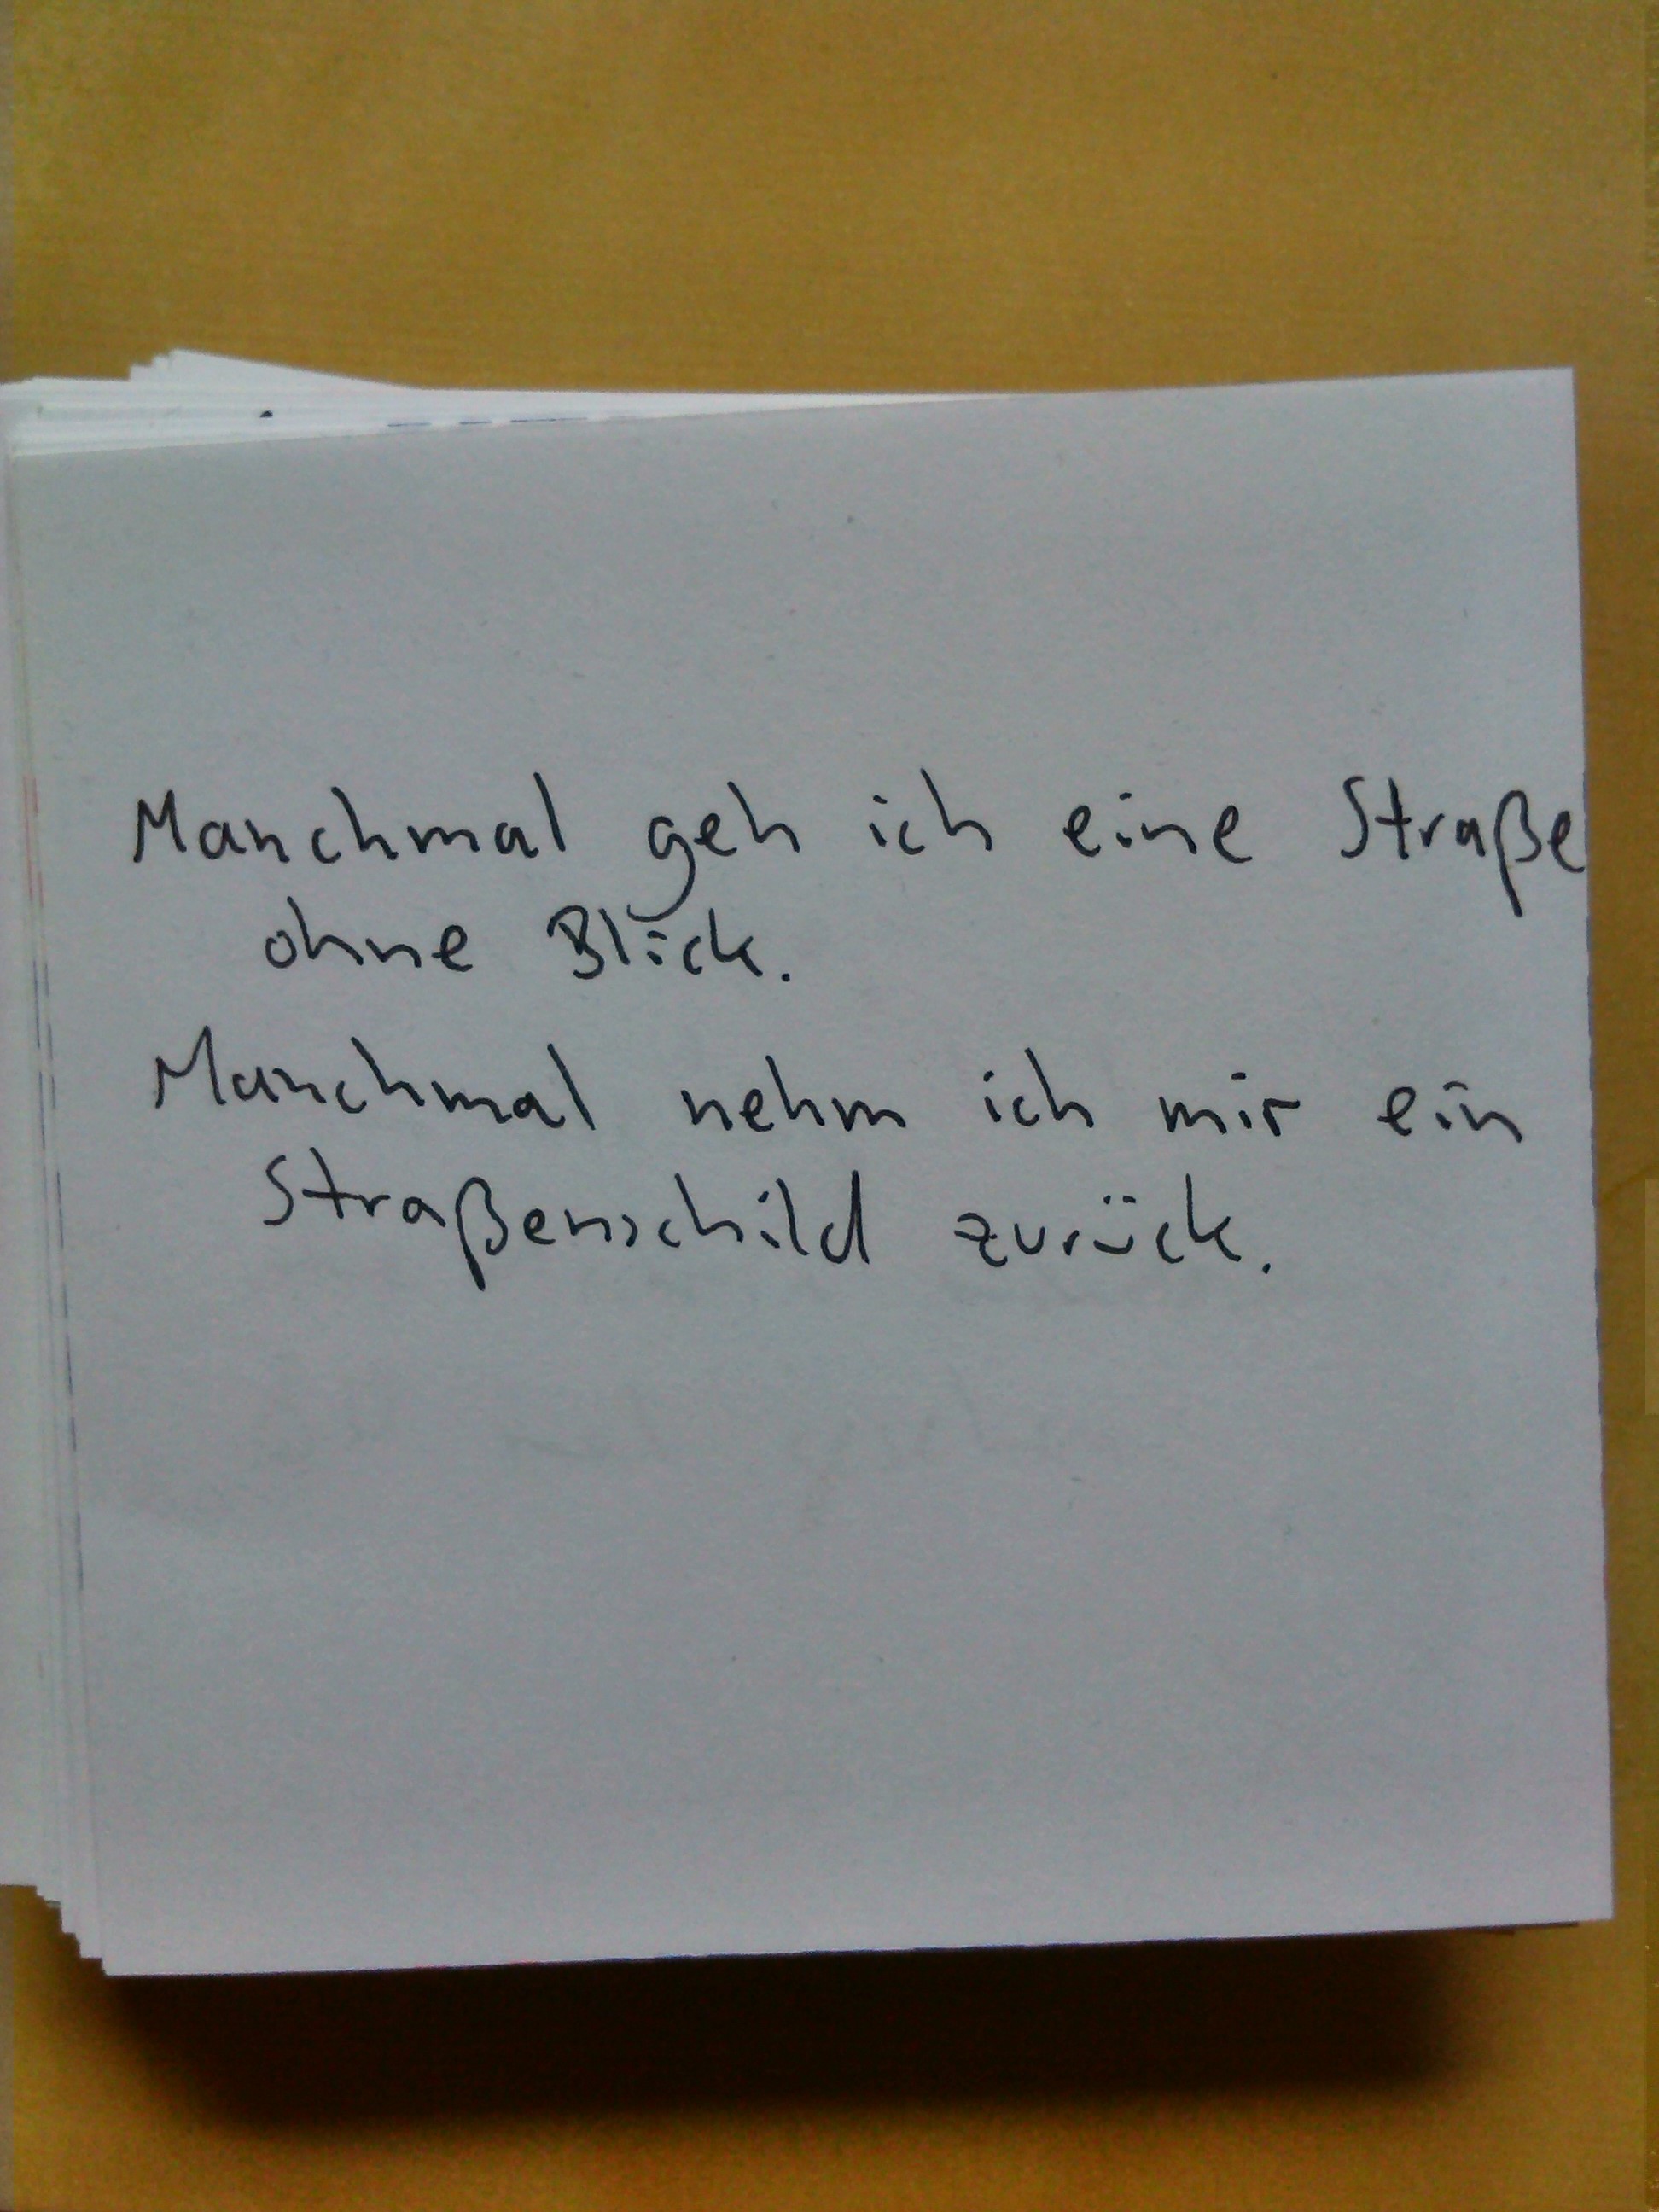 Manchmal geh ich eine Straße
ohne Blick.
Manchmal nehm ich mir ein
Straßenschild zurück.